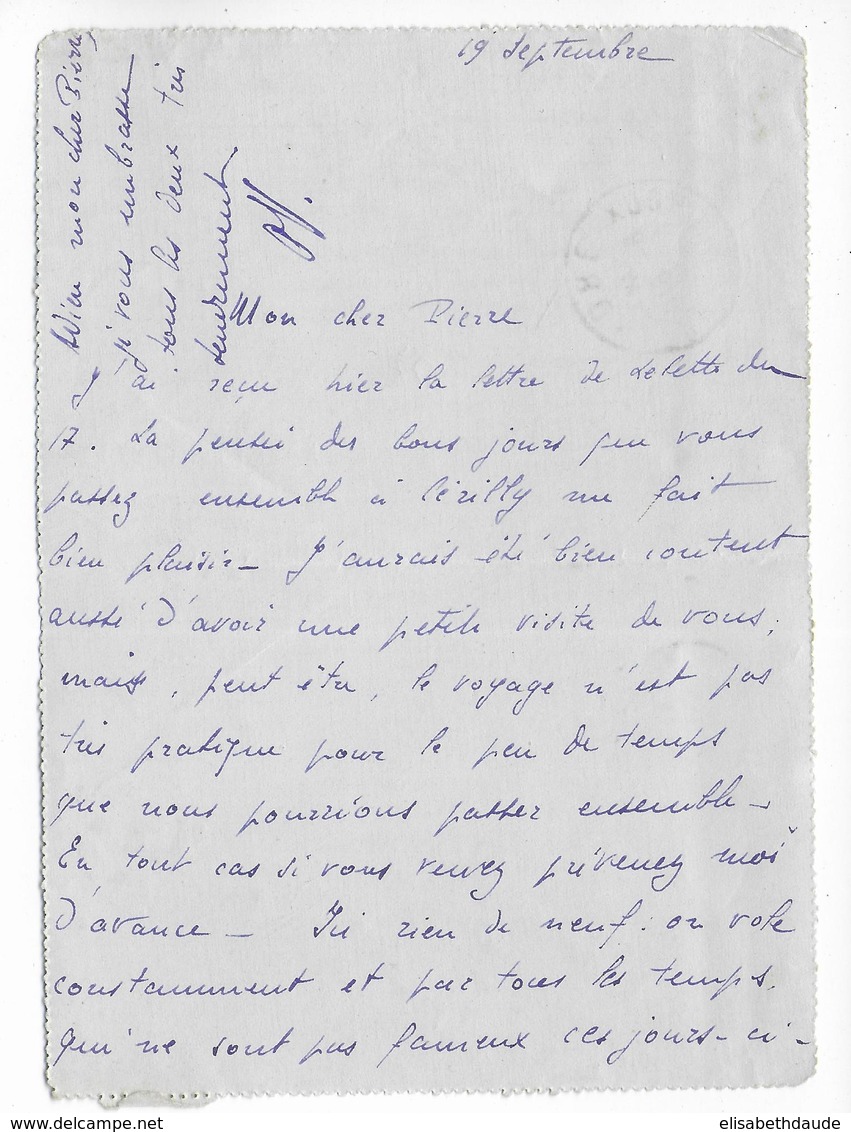 19 Septembre
Mon cher Pierre
J'ai reçu hier la lettre de Lolette du
17. La pensée des bons jours que vous
passez ensemble à Cérilly me fait
bien plaisir - J'aurais été bien content
aussi d'avoir une petite visite de vous,
mais, peut être, le voyage n'est pas
très pratique pour le peu de temps
que nous pourrions passer ensemble -
En tout cas si vous venez prévenez moi
d'avance - Ici rien de neuf : on vole
constamment et par tous les temps,
qui ne sont pas fameux ces jours-ci -
Adieu mon cher Pierre
je vous embrasse
tous les deux très
tendrement.
elisabethdaude